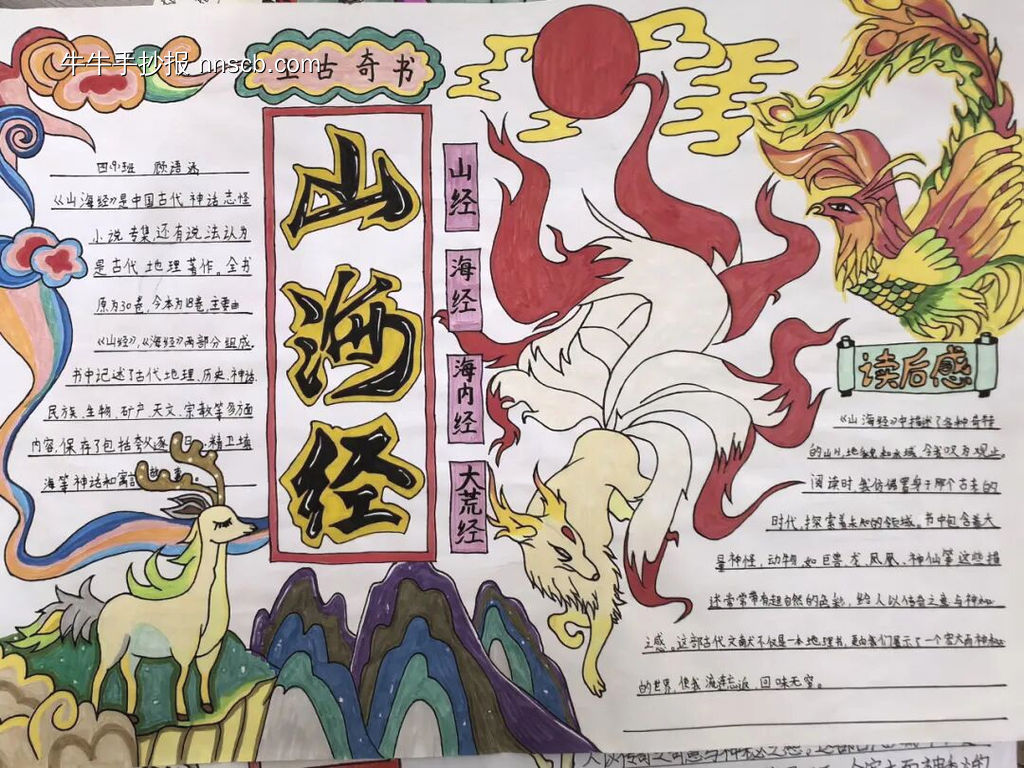 牛牛手抄报 nnscb.com
上古奇书
山海经
山经
海经
海内经
大荒经
四(9)班 顾语涵
《山海经》是中国古代神话志怪
小说专集,还有说法认为
是古代地理著作。全书
原为30卷,今本为18卷,主要由
《山经》,《海经》两部分组成.
书中记述了古代地理、历史、神话、
民族、生物、矿产、天文、宗教等多方面
内容,保存了包括夸父逐日、精卫填
海等神话和寓言故事。
读后感
《山海经》中描述了各种奇特
的山川地貌和水域,令我叹为观止。
阅读时我仿佛置身于那个古老的
时代,探索着未知的领域。书中包含着大
量神怪,动物,如巨兽、龙、凤凰、神仙等这些描
述常常带有超自然的色彩,给人以传奇之意与神秘
之感。这部古代文献不仅是一本地理书,更向我们展示了一个宏大而神秘
的世界,使我流连忘返,回味无穷。